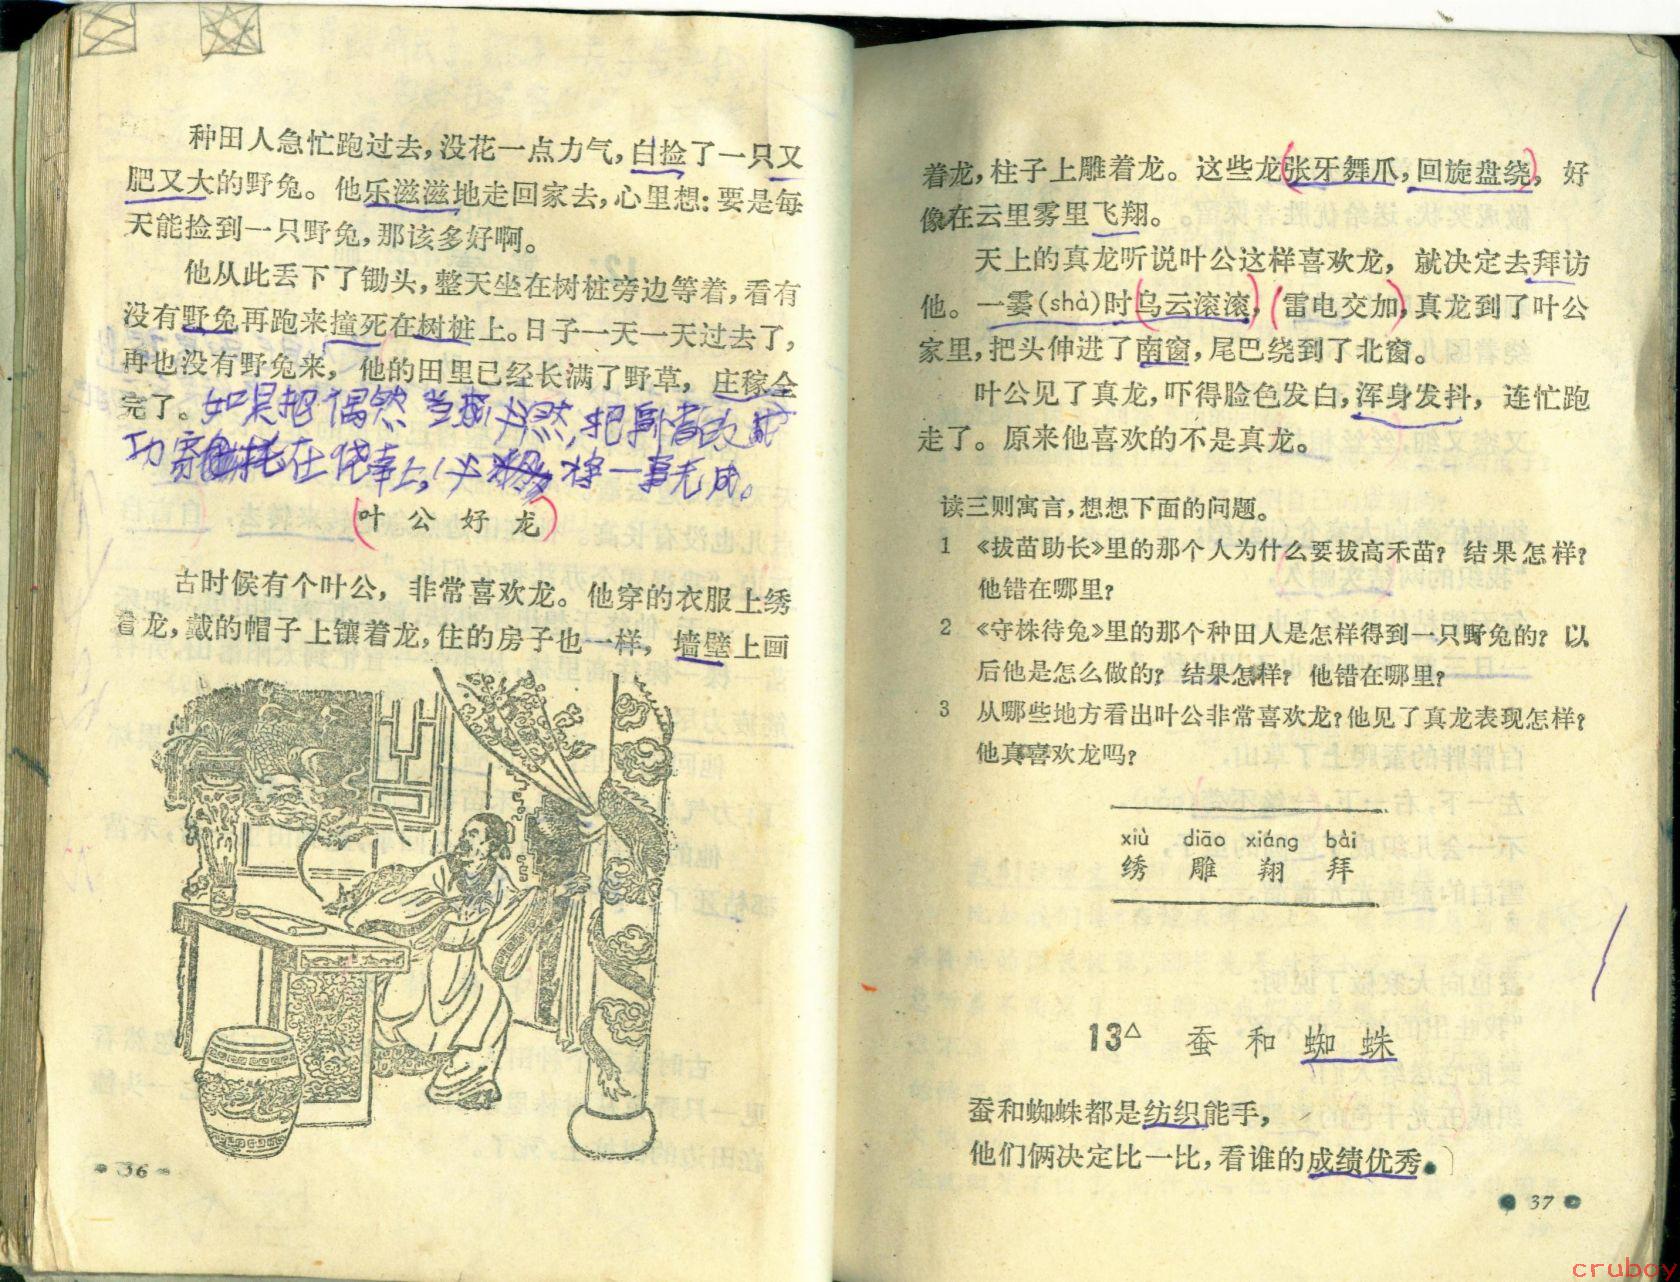 种田人急忙跑过去，没花一点力气，白捡了一只又
肥又大的野兔。他乐滋滋地走回家去，心里想：要是每
天能捡到一只野兔，那该多好啊。
他从此丢下了锄头，整天坐在树桩旁边等着，看有
没有野兔再跑来撞死在树桩上。日子一天一天过去了，
再也没有野兔来，他的田里已经长满了野草，庄稼全
完了。
如果把偶然当成必然，把
在 事上，必 将一事无成。
叶公好龙
古时候有个叶公，非常喜欢龙。他穿的衣服上绣
着龙，戴的帽子上镶着龙，住的房子也一样，墙壁上画
36
着龙，柱子上雕着龙。这些龙张牙舞爪，回旋盘绕，好
像在云里雾里飞翔。
天上的真龙听说叶公这样喜欢龙，就决定去拜访
他。一霎(shà)时乌云滚滚，雷电交加，真龙到了叶公
家里，把头伸进了南窗，尾巴绕到了北窗。
叶公见了真龙，吓得脸色发白，浑身发抖，连忙跑
走了。原来他喜欢的不是真龙。
读三则寓言，想想下面的问题。
1 《拔苗助长》里的那个人为什么要拔高禾苗？结果怎样？
他错在哪里？
2 《守株待兔》里的那个种田人是怎样得到一只野兔的？以
后他是怎么做的？结果怎样？他错在哪里？
3 从哪些地方看出叶公非常喜欢龙？他见了真龙表现怎样？
他真喜欢龙吗？
xiù diāo xiáng bài
绣 雕 翔 拜
13△ 蚕和蜘蛛
蚕和蜘蛛都是纺织能手，
他们俩决定比一比，看谁的成绩优秀。
37
cruboy